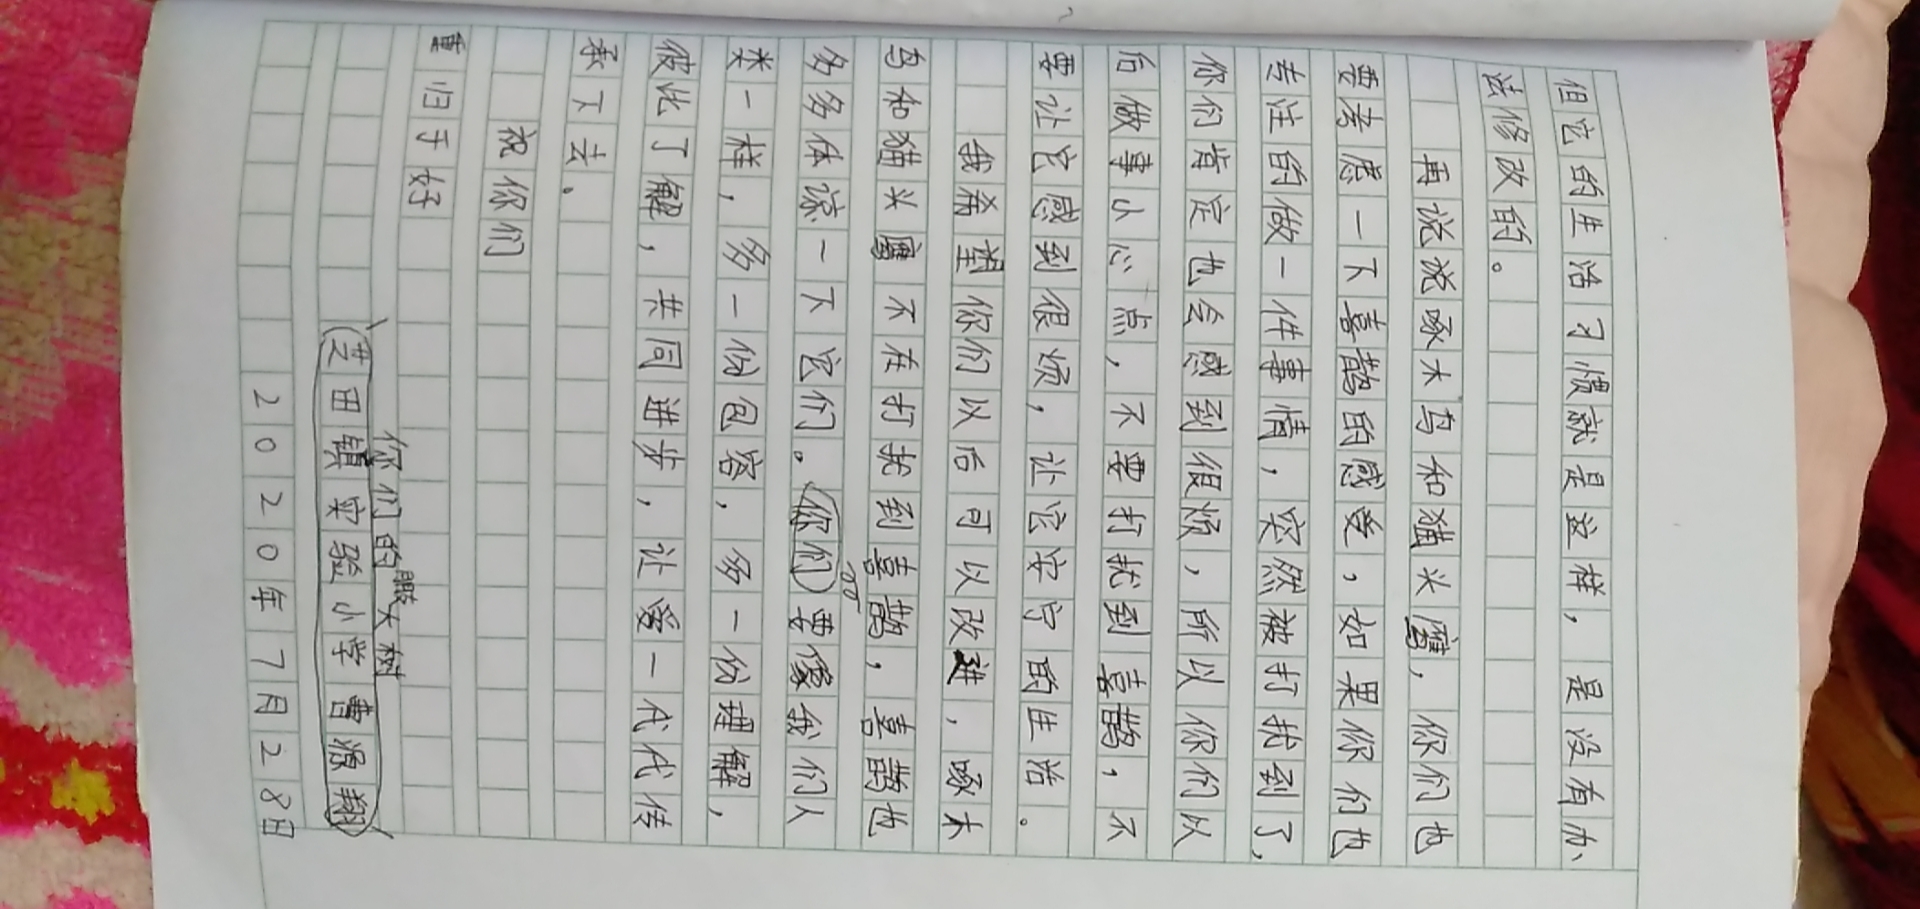 但它的生活习惯就是这样，是没有办
法修改的。
再说说啄木鸟和猫头鹰，你们也
要考虑一下喜鹊的感受，如果你们也
专注的做一件事情，突然被打扰到了，
你们肯定也会感到很烦，所以你们以
后做事小心点，不要打扰到喜鹊，不
要让它感到很烦，让它安宁的生活。
我希望你们以后可以改进，啄木
鸟和猫头鹰不在打扰到喜鹊，喜鹊也
多多体谅一下它们。你们要像我们人
类一样，多一份包容，多一份理解，
彼此了解，共同进步，让爱一代代传
承下去。
祝你们
重归于好
你们的朋友大树
田镇实验小学曹源翔
2020年7月28日